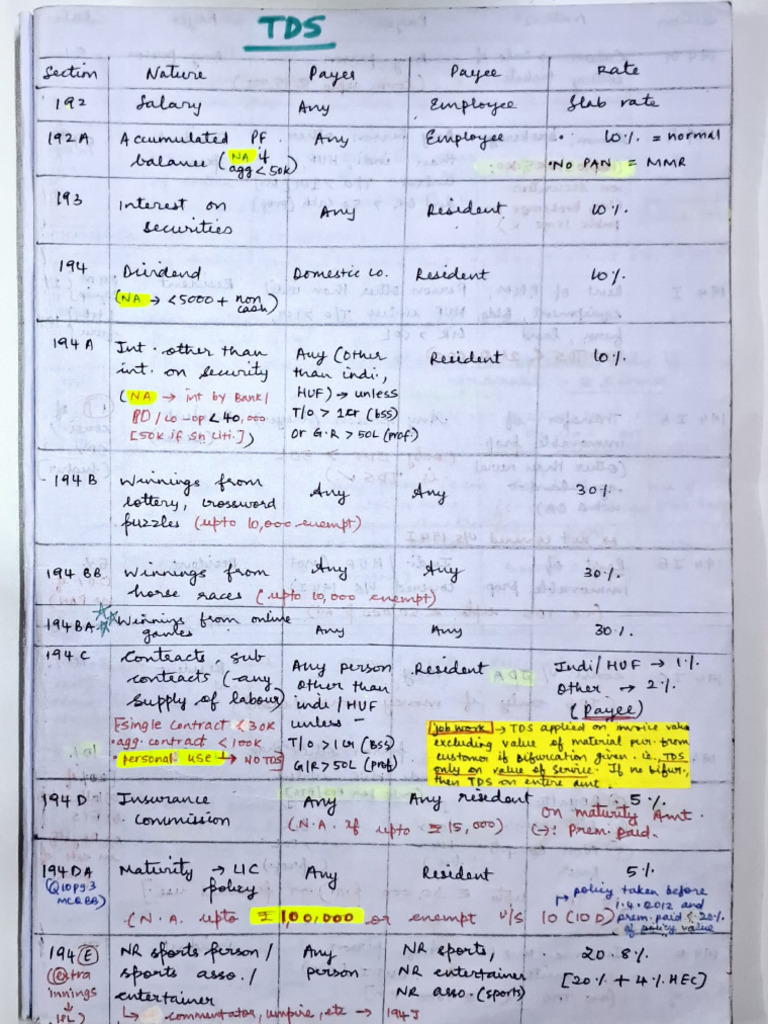 TDS
Section Nature Payer Payee Rate
192 Salary Any Employee Slab rate
192A Accumulated PF balance (NA if agg < 50K) Any Employee • 10% = normal
• NO PAN = MMR
193 Interest on securities Any Resident 10%
194 Dividend Domestic Co. Resident 10%
(NA → <5000 + non cash)
194A Int. other than int. on security Any (Other than indi., HUF) → unless T/O > 1cr (bss) or G.R > 50L (prof.) Resident 10%
(NA → int by Bank / PO / co-op < 40,000
[50K if Sn Citi.])
194B Winnings from lottery, crossword puzzles (upto 10,000 exempt) Any Any 30%
194BB Winnings from horse races (upto 10,000 exempt) Any Any 30%
194BA Winnings from online games Any Any 30%
194C Contracts, sub contracts (-any supply of labour) Any person other than indi/HUF unless – T/O > 1cr (BSS) G/R > 50L (prof) Resident Indi/HUF → 1%
Other → 2%
(payee)
[single contract < 30K
• agg. contract < 100K
• personal use → NO TDS]
Job work → TDS applied on invoice value
excluding value of material pur. from
customer if bifurcation given. i.e., TDS
only on value of service. If no bifur.,
then TDS on entire amt.
194D Insurance commission Any Any resident 5%
(N.A. if upto ₹15,000)
on maturity Amt.
(-): Prem. paid.
194DA Maturity → LIC policy Any Resident 5%
(Q10 pg.3
MCQ BB)
(N.A. upto ₹1,00,000 or exempt u/s 10(10D)
policy taken before
1.4.2012 and
prem. paid ≤ 20%
of policy value
194E NR sports person / sports asso. / entertainer Any person NR sports, NR entertainer NR asso. (sports) 20.8%
[20% + 4% HEC]
(Extra
innings
↓
)
↳ commentator, umpire, etc → 194J